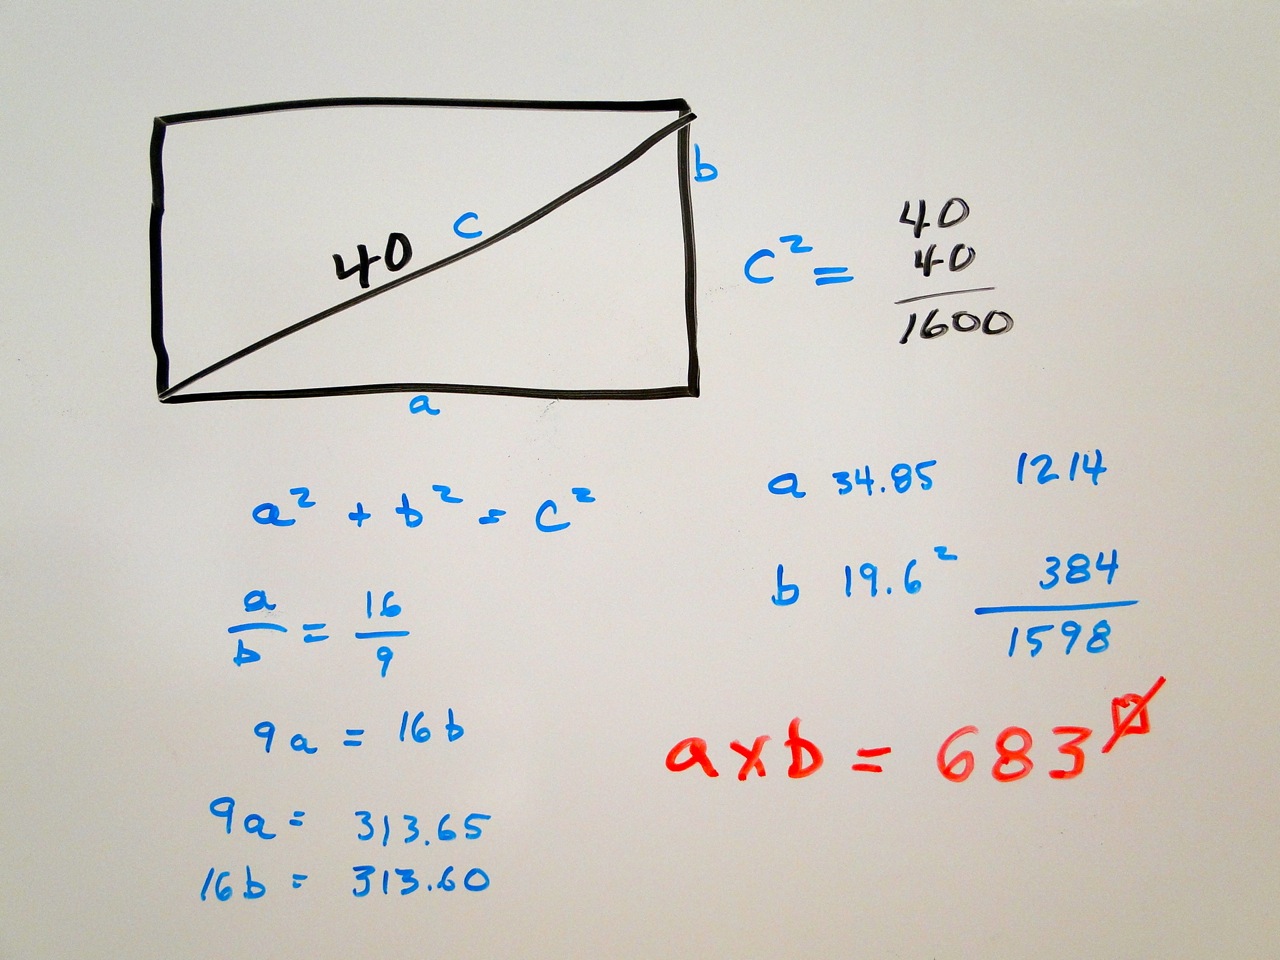 b
c
40
a
c² =
40
40
1600
a² + b² = c²
a/b = 16/9
9a = 16b
9a = 313.65
16b = 313.60
a 34.85 1214
b 19.6² 384
1598
a x b = 683